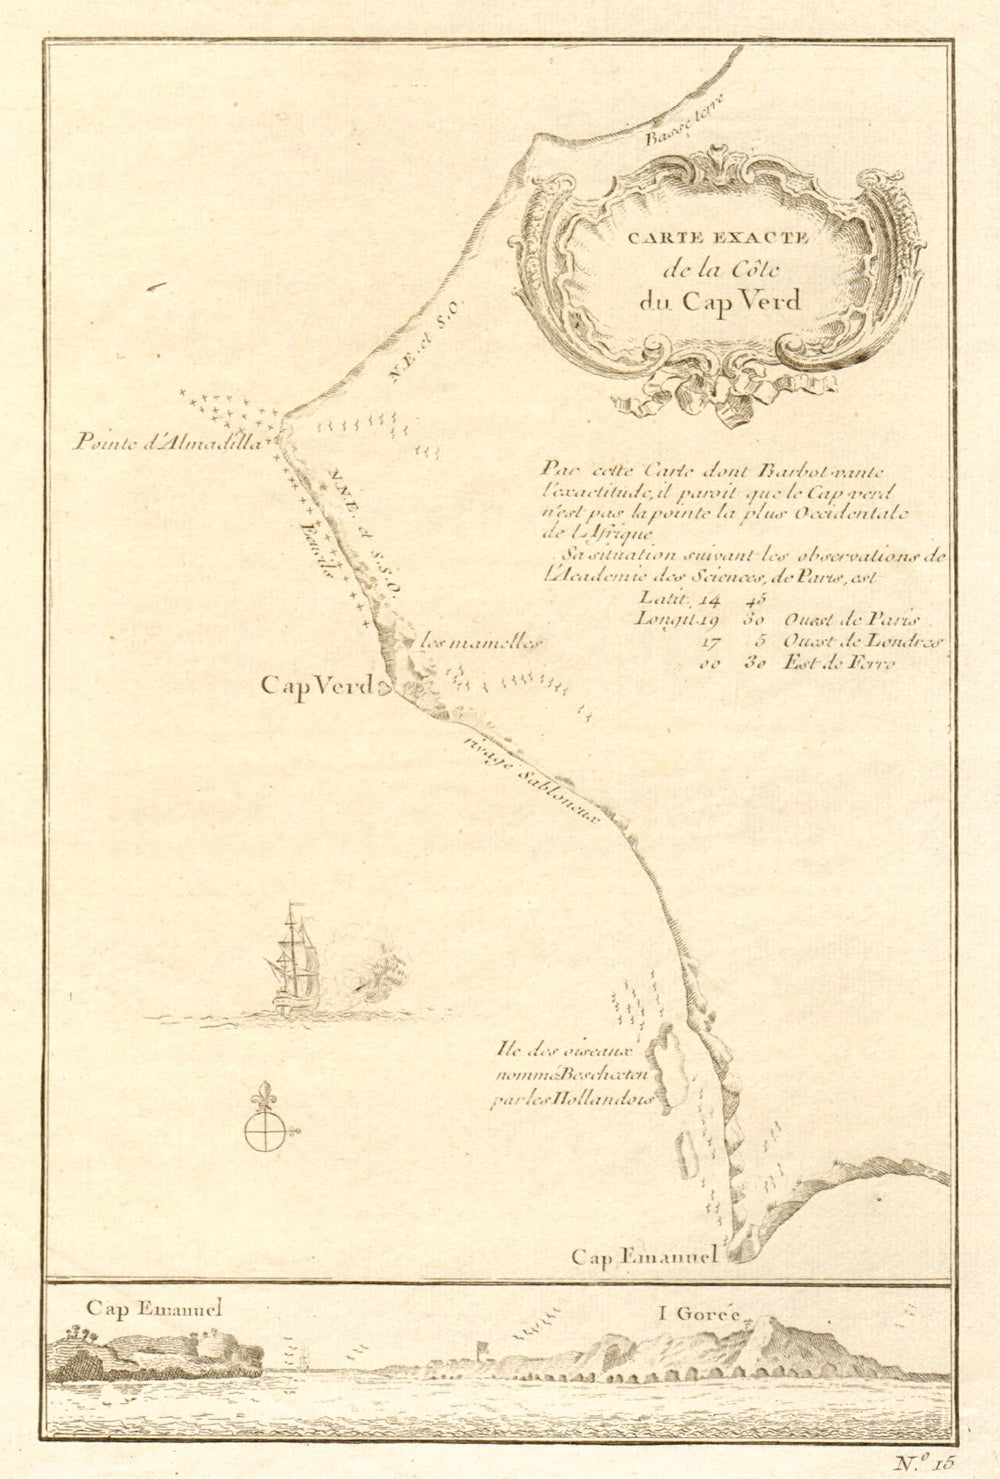 Basse terre
CARTE EXACTE
de la Côte
du Cap Verd
N.E. et S.O.
Pointe d'Almadilla
N.N.E. et S.S.O.
Ecueils
Par cette Carte dont Barbot vante
l'exactitude, il paroit que le Cap verd
n'est pas la pointe la plus Occidentale
de l'Afrique
Sa situation suivant les observations de
l'Academie des Sciences, de Paris, est
Latit. 14 45
Longit. 19 30 Ouest de Paris
17 5 Ouest de Londres
00 30 Est de Ferro
les mamelles
Cap Verd
rivage Sabloneux
Ile des oiseaux
nommé Beschœten
par les Hollandois
Cap Emanuel
Cap Emanuel
I Gorée
N.º 15